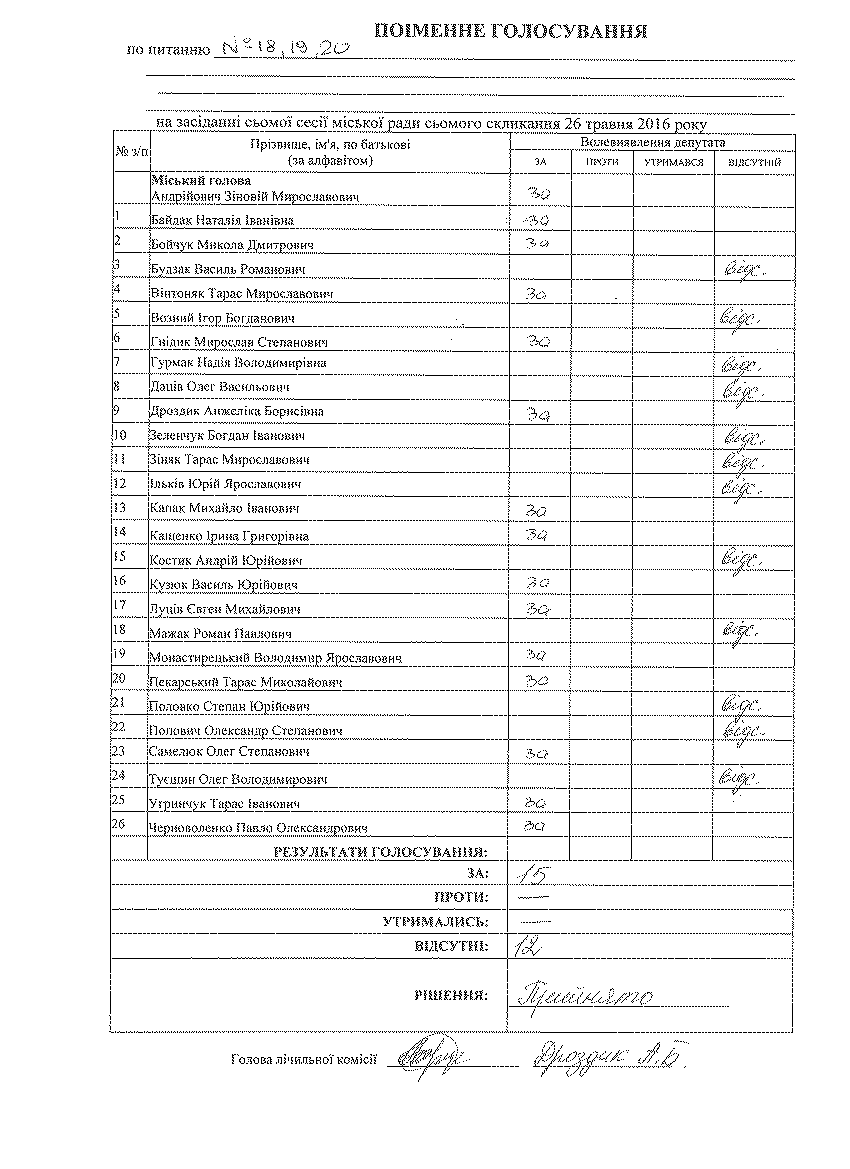 ПОІМЕННЕ ГОЛОСУВАННЯ
по питанню № 18, 19, 20
на засіданні сьомої сесії міської ради сьомого скликання 26 травня 2016 року
№ з/п Прізвище, ім'я, по батькові (за алфавітом) Волевиявлення депутата
ЗА ПРОТИ УТРИМАВСЯ ВІДСУТНІЙ
Міський голова
Андрійович Зіновій Мирославович за
1 Байдак Наталія Іванівна за
2 Бойчук Микола Дмитрович за
3 Будзак Василь Романович відс.
4 Вінтоняк Тарас Мирославович за
5 Возний Ігор Богданович відс.
6 Гнідик Мирослав Степанович за
7 Гурмак Надія Володимирівна відс.
8 Даців Олег Васильович відс.
9 Дроздик Анжеліка Борисівна за
10 Зеленчук Богдан Іванович відс.
11 Зіняк Тарас Мирославович відс.
12 Ільків Юрій Ярославович відс.
13 Капак Михайло Іванович за
14 Кащенко Ірина Григорівна за
15 Костик Андрій Юрійович відс.
16 Кузюк Василь Юрійович за
17 Луців Євген Михайлович за
18 Мажак Роман Павлович відс.
19 Монастирецький Володимир Ярославович за
20 Пекарський Тарас Миколайович за
21 Половко Степан Юрійович відс.
22 Попович Олександр Степанович відс.
23 Самелюк Олег Степанович за
24 Туєшин Олег Володимирович відс.
25 Угринчук Тарас Іванович за
26 Черноволенко Павло Олександрович за
РЕЗУЛЬТАТИ ГОЛОСУВАННЯ:
ЗА: 15
ПРОТИ: —
УТРИМАЛИСЬ: —
ВІДСУТНІ: 12
РІШЕННЯ: Прийнято
Голова лічильної комісії Дроздик А.Б.